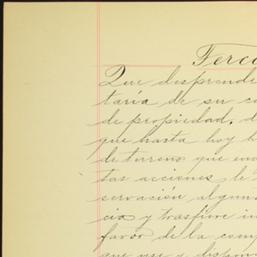 Terce
Que desprendi
taría de su co
de propiedad, d
que hasta hoy h
de terreno que ena
tas acciones le
servación alguna
cio y traspaso in
favor de la comp
que use y dispon